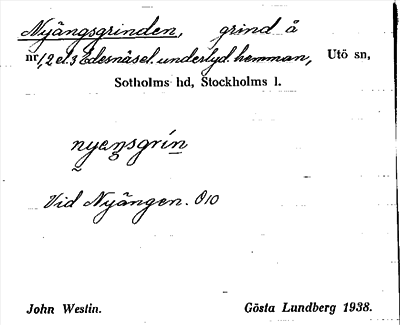 Nyängsgrinden, grind å
nr 1, 2 el. 3 Edesnäs el. underlyd. hemman, Utö sn,
Sotholms hd, Stockholms l.
nyeŋsgrín
Vid Nyängen. Ö10
John Westin. Gösta Lundberg 1938.